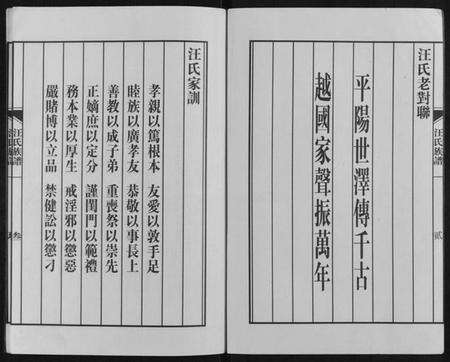 汪氏老對聯
平陽世澤傳千古
越國家聲振萬年
汪氏族譜
貳
汪氏家訓
孝親以篤根本 友愛以敦手足
睦族以廣孝友 恭敬以事長上
善教以成子弟 重喪祭以崇先
正嫡庶以定分 謹閨門以範禮
務本業以厚生 戒淫邪以懲惡
嚴賭博以立品 禁健訟以懲刁
汪氏族譜
叁